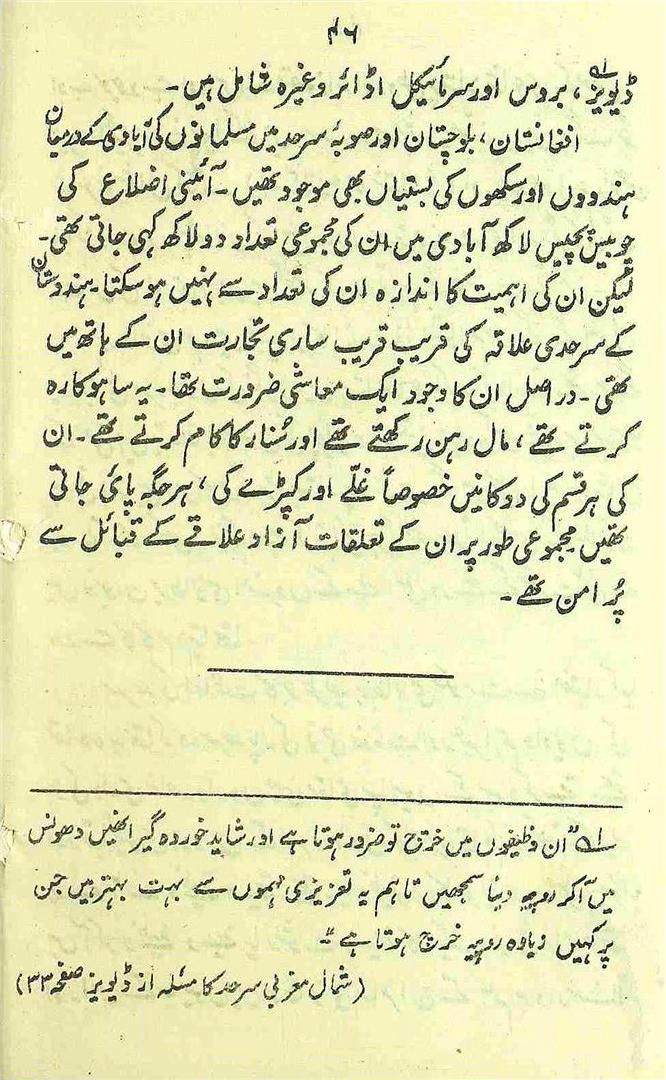 ۴۶
ڈیویز؎۱، بروس اور سر مائیکل اڈائر وغیرہ شامل ہیں۔
افغانستان، بلوچستان اور صوبۂ سرحد میں مسلمانوں کی آبادی کے درمیان
ہندووں اور سکھوں کی بستیاں بھی موجود تھیں۔ آئینی اضلاع کی
چوبیس پچیس لاکھ آبادی میں ان کی مجموعی تعداد دو لاکھ کہی جاتی تھی۔
لیکن ان کی اہمیت کا اندازہ ان کی تعداد سے نہیں ہو سکتا۔ ہندوستان
کے سرحدی علاقہ کی قریب قریب ساری تجارت ان کے ہاتھ میں
تھی۔ در اصل ان کا وجود ایک معاشی ضرورت تھا۔ یہ ساہوکارہ
کرتے تھے، مال رہن رکھتے تھے اور سُنار کا کام کرتے تھے۔ ان
کی ہر قسم کی دوکانیں خصوصاً غلّے اور کپڑے کی، ہر جگہ پائی جاتی
تھیں مجموعی طور پر ان کے تعلقات آزاد علاقے کے قبائل سے
پُر امن تھے۔
؎۱ "ان وظیفوں میں خرچ تو ضرور ہوتا ہے اور شاید خوردہ گیر انھیں دھونس
میں آکر روپیہ دینا سمجھیں تاہم یہ تعزیزی مہموں سے بہت بہتر ہیں جن
پر کہیں زیادہ روپیہ خرچ ہوتا ہے"۔
(شمال مغربی سرحد کا مسئلہ از ڈیویز صفحہ ۳۳)